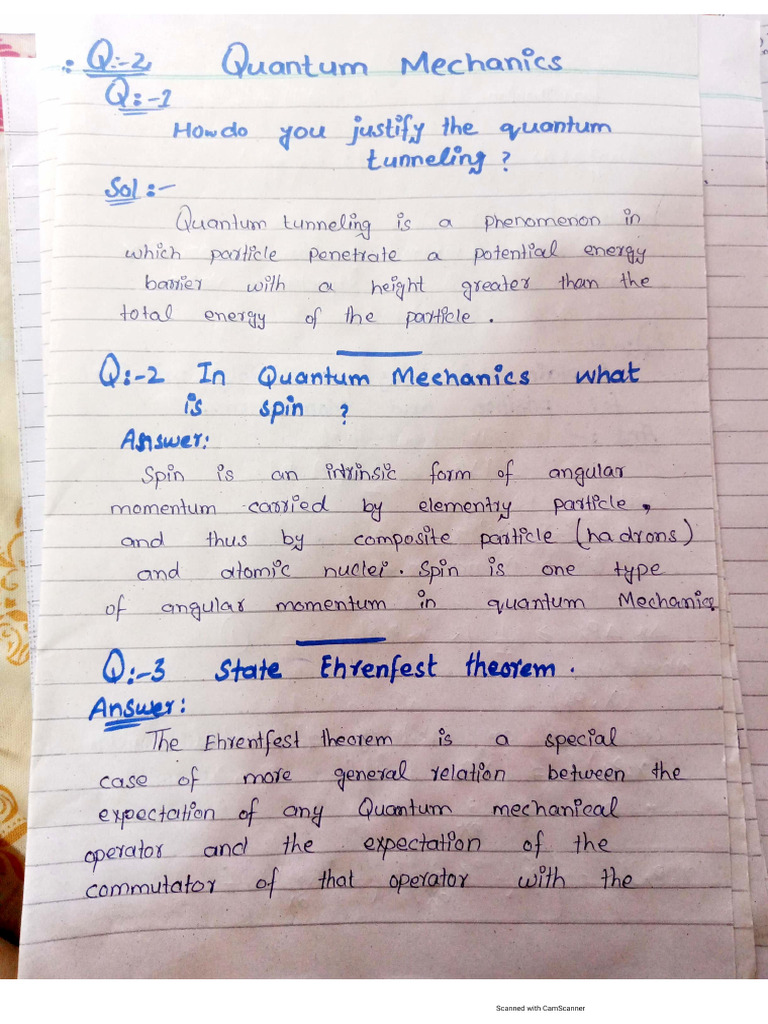 Q:-2, Quantum Mechanics
Q:-1
How do you justify the quantum
tunneling?
Sol:-
Quantum tunneling is a phenomenon in
which particle penetrate a potential energy
barrier with a height greater than the
total energy of the particle.
Q:-2 In Quantum Mechanics what
is spin?
Answer:
Spin is an intrinsic form of angular
momentum carried by elementry particle,
and thus by composite particle (hadrons)
and atomic nuclei. Spin is one type
of angular momentum in quantum Mechanics
Q:-3 State Ehrenfest theorem.
Answer:
The Ehrentfest theorem is a special
case of more general relation between the
expectation of any Quantum mechanical
operator and the expectation of the
commutator of that operator with the
Scanned with CamScanner